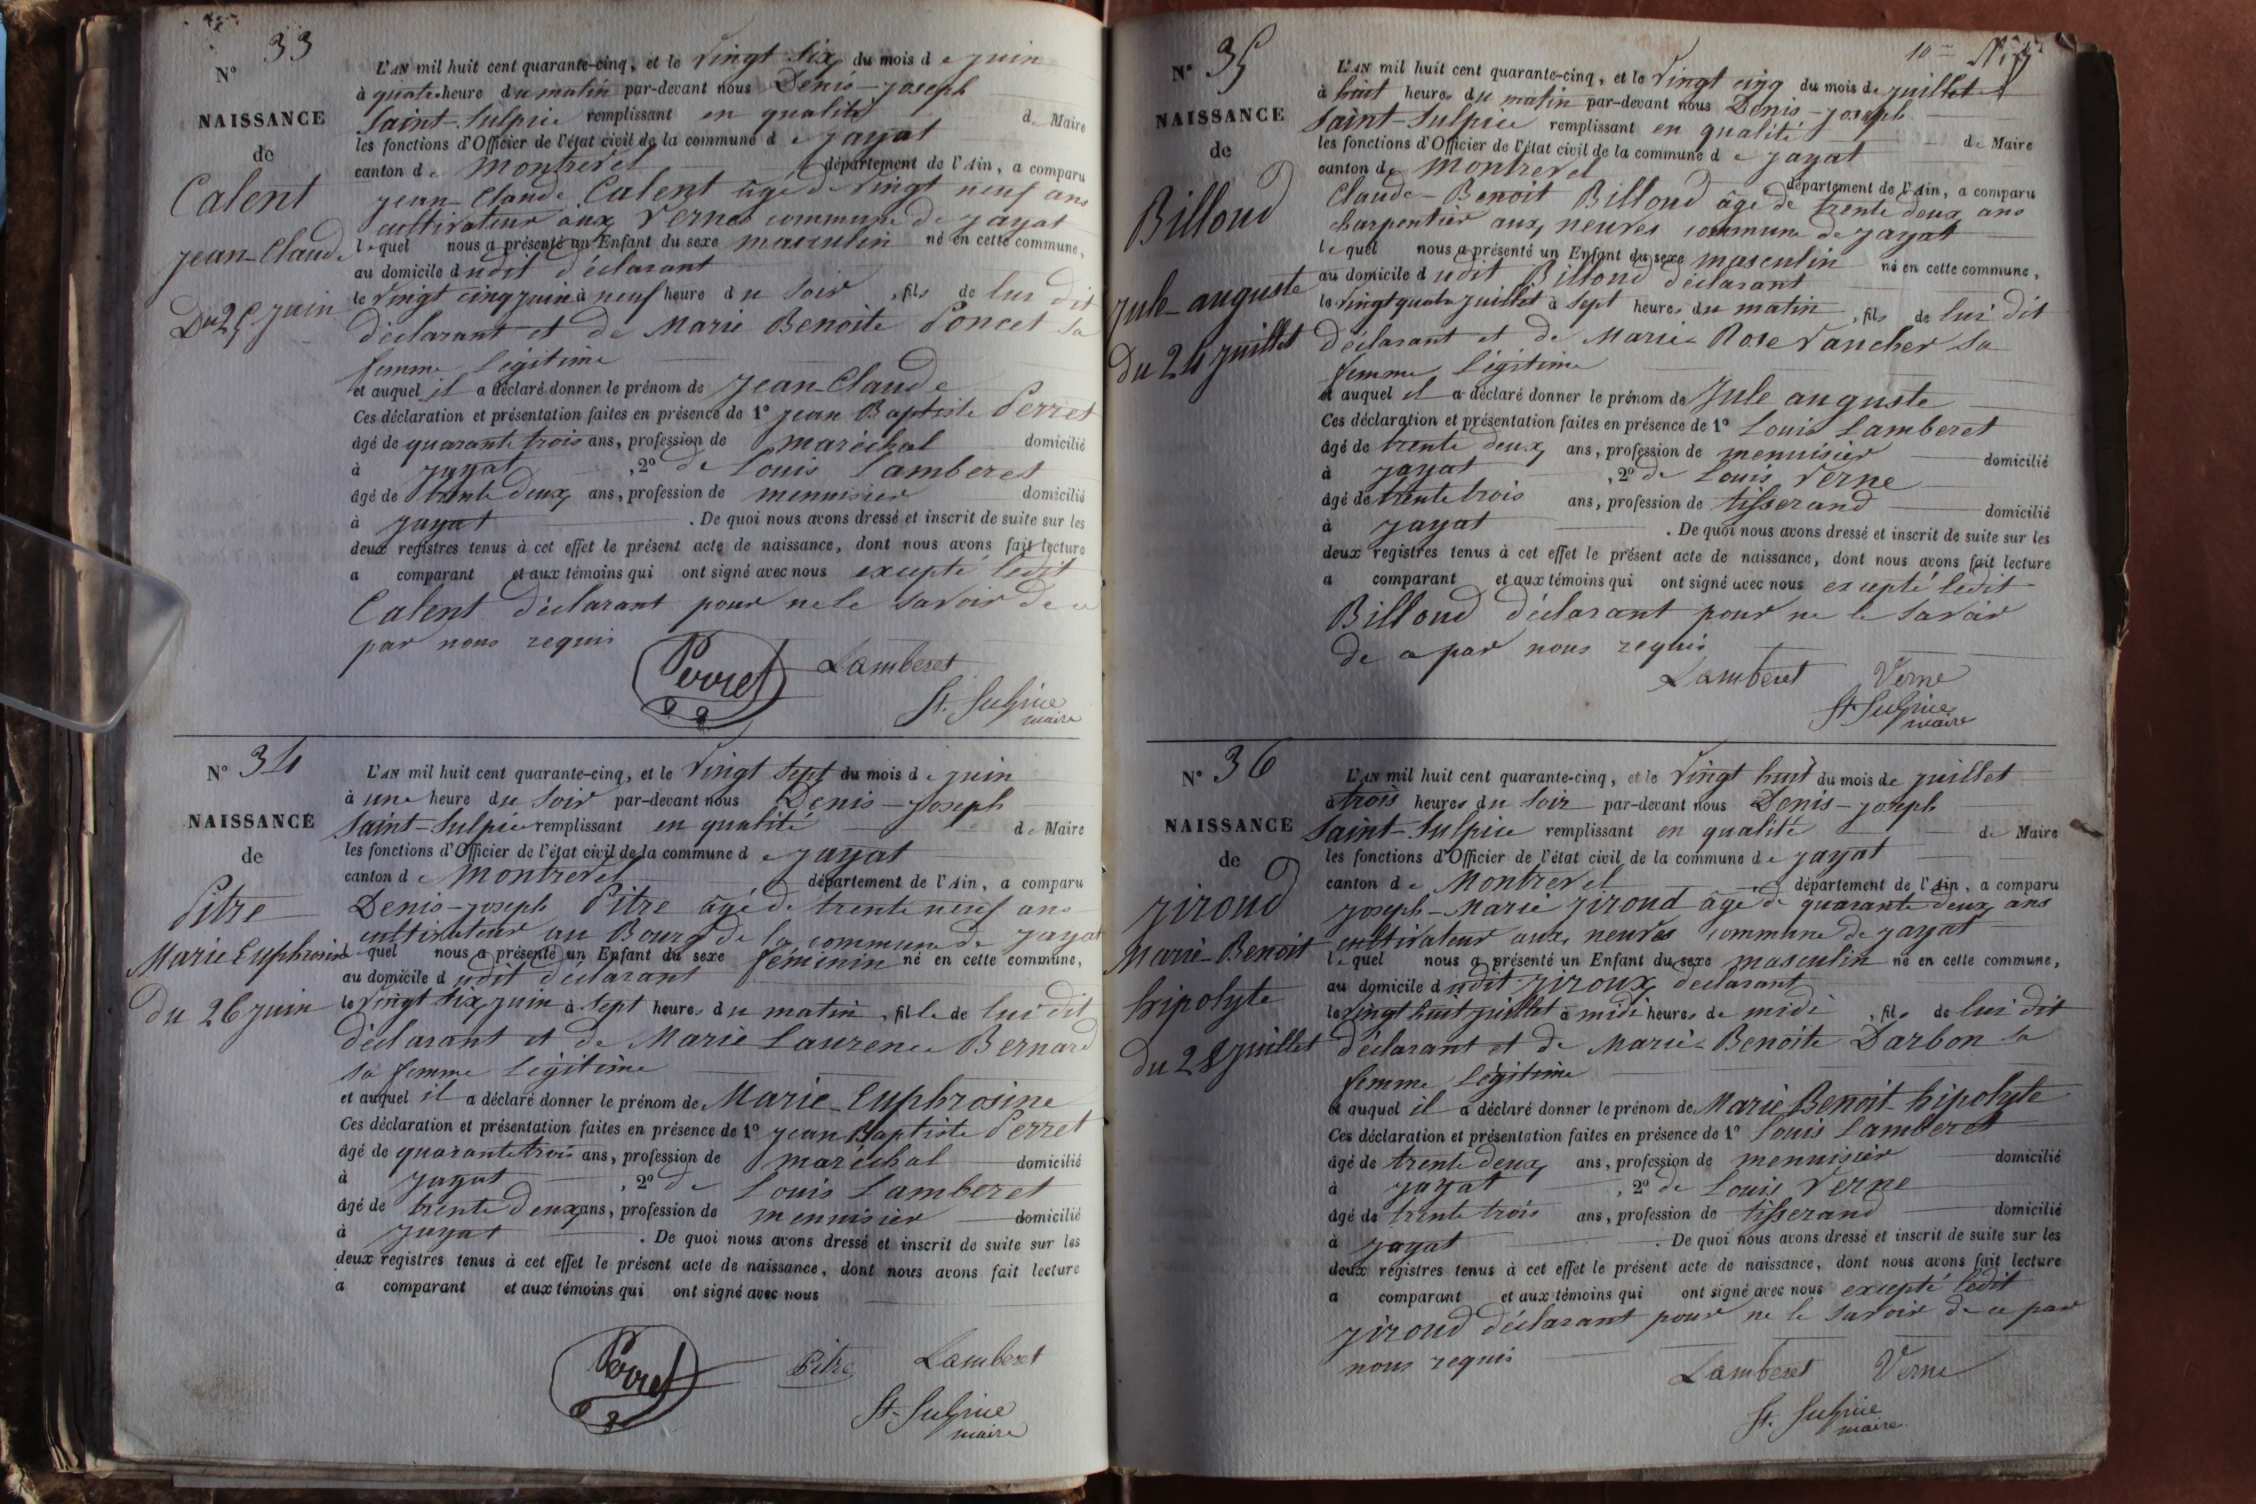 N° 33
NAISSANCE
de
Calent
Jean-Claude
Du 25 Juin
L'AN mil huit cent quarante-cinq, et le Vingt Six du mois de Juin
à quatre heure du matin par-devant nous Denis-Joseph
Saint-Sulpice remplissant en qualité de Maire
les fonctions d'Officier de l'état civil de la commune de Jayat
canton de Montrevel département de l'Ain, a comparu
Jean-Claude Calent âgé de Vingt neuf ans
cultivateur aux Vernes commune de Jayat
lequel nous a présenté un Enfant du sexe masculin né en cette commune,
au domicile dudit déclarant
le Vingt cinq Juin à neuf heure du Soir, fils de lui dit
déclarant et de Marie Benoite Poncet sa
femme Légitime
et auquel il a déclaré donner le prénom de Jean-Claude
Ces déclaration et présentation faites en présence de 1° Jean Baptiste Perret
âgé de quarante trois ans, profession de maréchal domicilié
à Jayat, 2° de Louis Lamberet
âgé de trente deux ans, profession de menuisier domicilié
à Jayat. De quoi nous avons dressé et inscrit de suite sur les
deux registres tenus à cet effet le présent acte de naissance, dont nous avons fait lecture
a comparant et aux témoins qui ont signé avec nous excepté ledit
Calent déclarant pour ne le Savoir de ce
par nous requis
Perret Lamberet
St. Sulpice
maire
N° 34
NAISSANCE
de
Pitre
Marie Euphrosine
du 26 juin
L'AN mil huit cent quarante-cinq, et le Vingt Sept du mois de Juin
à une heure du Soir par-devant nous Denis-Joseph
Saint-Sulpice remplissant en qualité de Maire
les fonctions d'Officier de l'état civil de la commune de Jayat
canton de Montrevel département de l'Ain, a comparu
Denis-Joseph Pitre âgé de trente neuf ans
cultivateur au Bourg de la commune de Jayat
lequel nous a présenté un Enfant du sexe féminin né en cette commune,
au domicile dudit déclarant
le Vingt Six Juin à Sept heures du matin, fille de lui dit
déclarant et de Marie Laurence Bernard
sa femme Légitime
et auquel il a déclaré donner le prénom de Marie-Euphrosine
Ces déclaration et présentation faites en présence de 1° Jean Baptiste Perret
âgé de quarante trois ans, profession de maréchal domicilié
à Jayat, 2° de Louis Lamberet
âgé de trente deux ans, profession de menuisier domicilié
à Jayat. De quoi nous avons dressé et inscrit de suite sur les
deux registres tenus à cet effet le présent acte de naissance, dont nous avons fait lecture
a comparant et aux témoins qui ont signé avec nous
Perret Pitre Lamberet
St. Sulpice
maire
10me
N° 35
NAISSANCE
de
Billoud
Jule-auguste
du 24 Juillet
L'AN mil huit cent quarante-cinq, et le Vingt cinq du mois de Juillet
à huit heures du matin par-devant nous Denis-Joseph
Saint-Sulpice remplissant en qualité de Maire
les fonctions d'Officier de l'état civil de la commune de Jayat
canton de Montrevel département de l'Ain, a comparu
Claude-Benoit Billoud âgé de trente deux ans
charpentier aux neuves commune de Jayat
lequel nous a présenté un Enfant du sexe masculin né en cette commune,
au domicile dudit Billoud déclarant
le Vingt quatre Juillet à Sept heures du matin, fils de lui dit
déclarant et de Marie-Rose Vancher sa
femme Légitime
et auquel il a déclaré donner le prénom de Jule auguste
Ces déclaration et présentation faites en présence de 1° Louis Lamberet
âgé de trente deux ans, profession de menuisier domicilié
à Jayat, 2° de Louis Verne
âgé de trente trois ans, profession de tisserand domicilié
à Jayat. De quoi nous avons dressé et inscrit de suite sur les
deux registres tenus à cet effet le présent acte de naissance, dont nous avons fait lecture
a comparant et aux témoins qui ont signé avec nous excepté ledit
Billoud déclarant pour ne le Savoir
de ce par nous requis
Lamberet Verne
St. Sulpice
maire
N° 36
NAISSANCE
de
Jiroud
Marie-Benoit
hipolyte
du 28 Juillet
L'AN mil huit cent quarante-cinq, et le Vingt huit du mois de Juillet
à trois heures du Soir par-devant nous Denis-Joseph
Saint-Sulpice remplissant en qualité de Maire
les fonctions d'Officier de l'état civil de la commune de Jayat
canton de Montrevel département de l'Ain, a comparu
Joseph-Marie Jiroud âgé de quarante deux ans
cultivateur aux neuves commune de Jayat
lequel nous a présenté un Enfant du sexe masculin né en cette commune,
au domicile dudit Jiroux déclarant
le Vingt huit Juillet à midi heures de midi, fils de lui dit
déclarant et de Marie-Benoite Darbon sa
femme Légitime
et auquel il a déclaré donner le prénom de Marie Benoit hipolyte
Ces déclaration et présentation faites en présence de 1° Louis Lamberet
âgé de trente deux ans, profession de menuisier domicilié
à Jayat, 2° de Louis Verne
âgé de trente trois ans, profession de tisserand domicilié
à Jayat. De quoi nous avons dressé et inscrit de suite sur les
deux registres tenus à cet effet le présent acte de naissance, dont nous avons fait lecture
a comparant et aux témoins qui ont signé avec nous excepté ledit
Jiroud déclarant pour ne le Savoir de ce par
nous requis
Lamberet Verne
St. Sulpice
maire